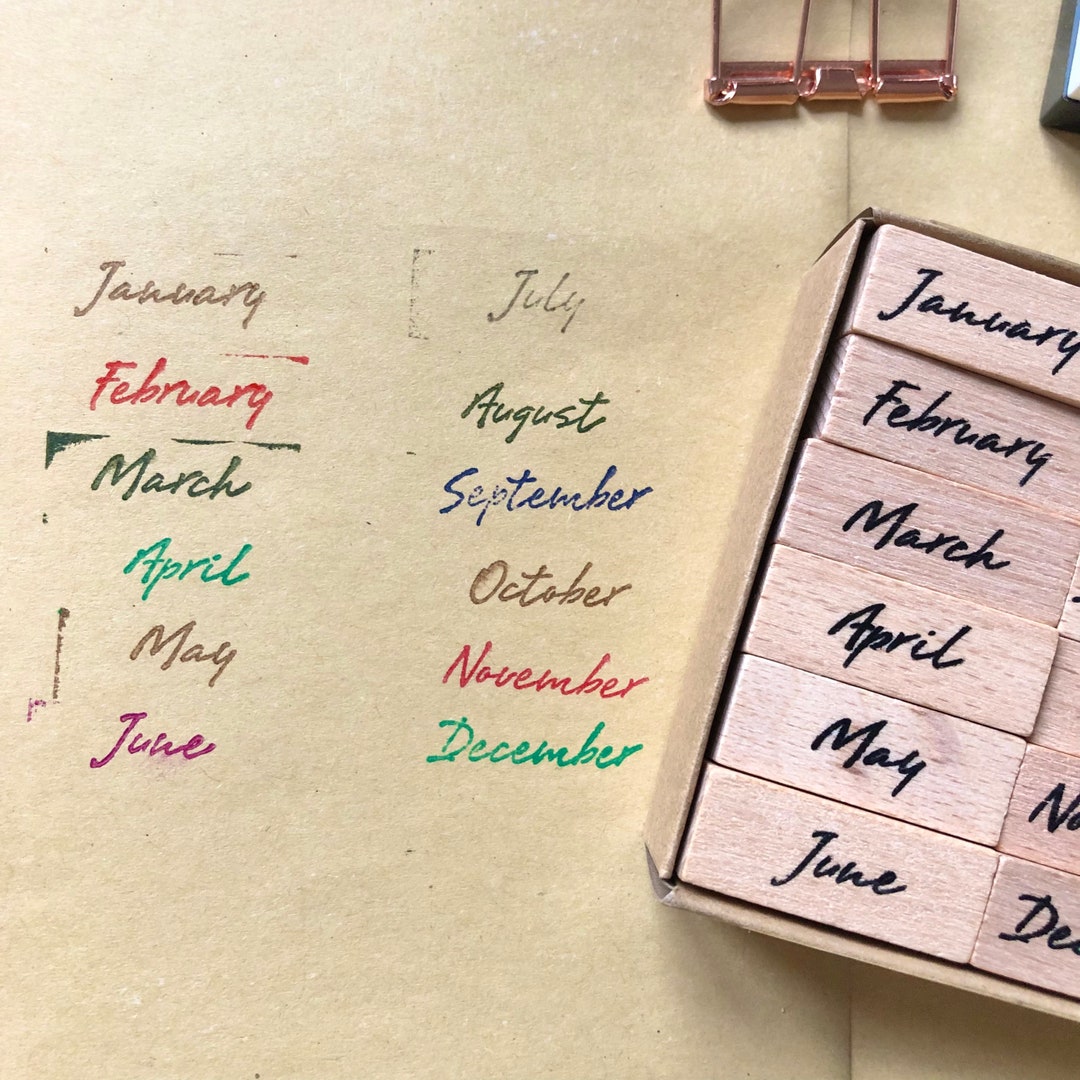 January
February
March
April
May
June
July
August
September
October
November
December
January
February
March
April
May
June